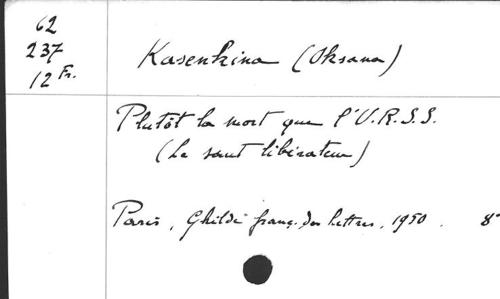 62
237
12 Fr.
Kasenkina (Oksana)
Plutôt la mort que l'U.R.S.S.
(Le saut libérateur)
Paris, Ghilde franç. des Lettres, 1950. 8°